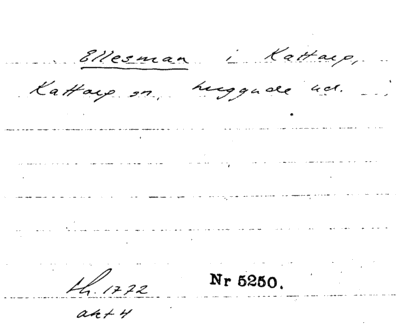 Ellesman i Kattarp,
Kattarp sn., Luggude hd.
th. 1772 Nr 5250.
akt 4